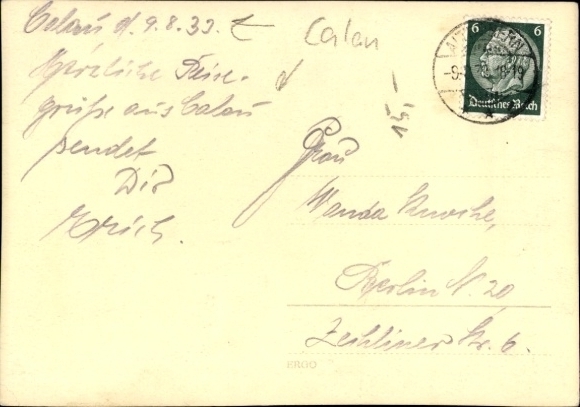 Calau d. 9.8.33.
Herzliche Reise-
grüße aus Calau
sendet
Dir
Erich.
Calau
15,-
6 6
Deutsches Reich
-9. -18-19
Frau
Wanda
Berlin N. 20
Zechliner Str. 6.
ERGO